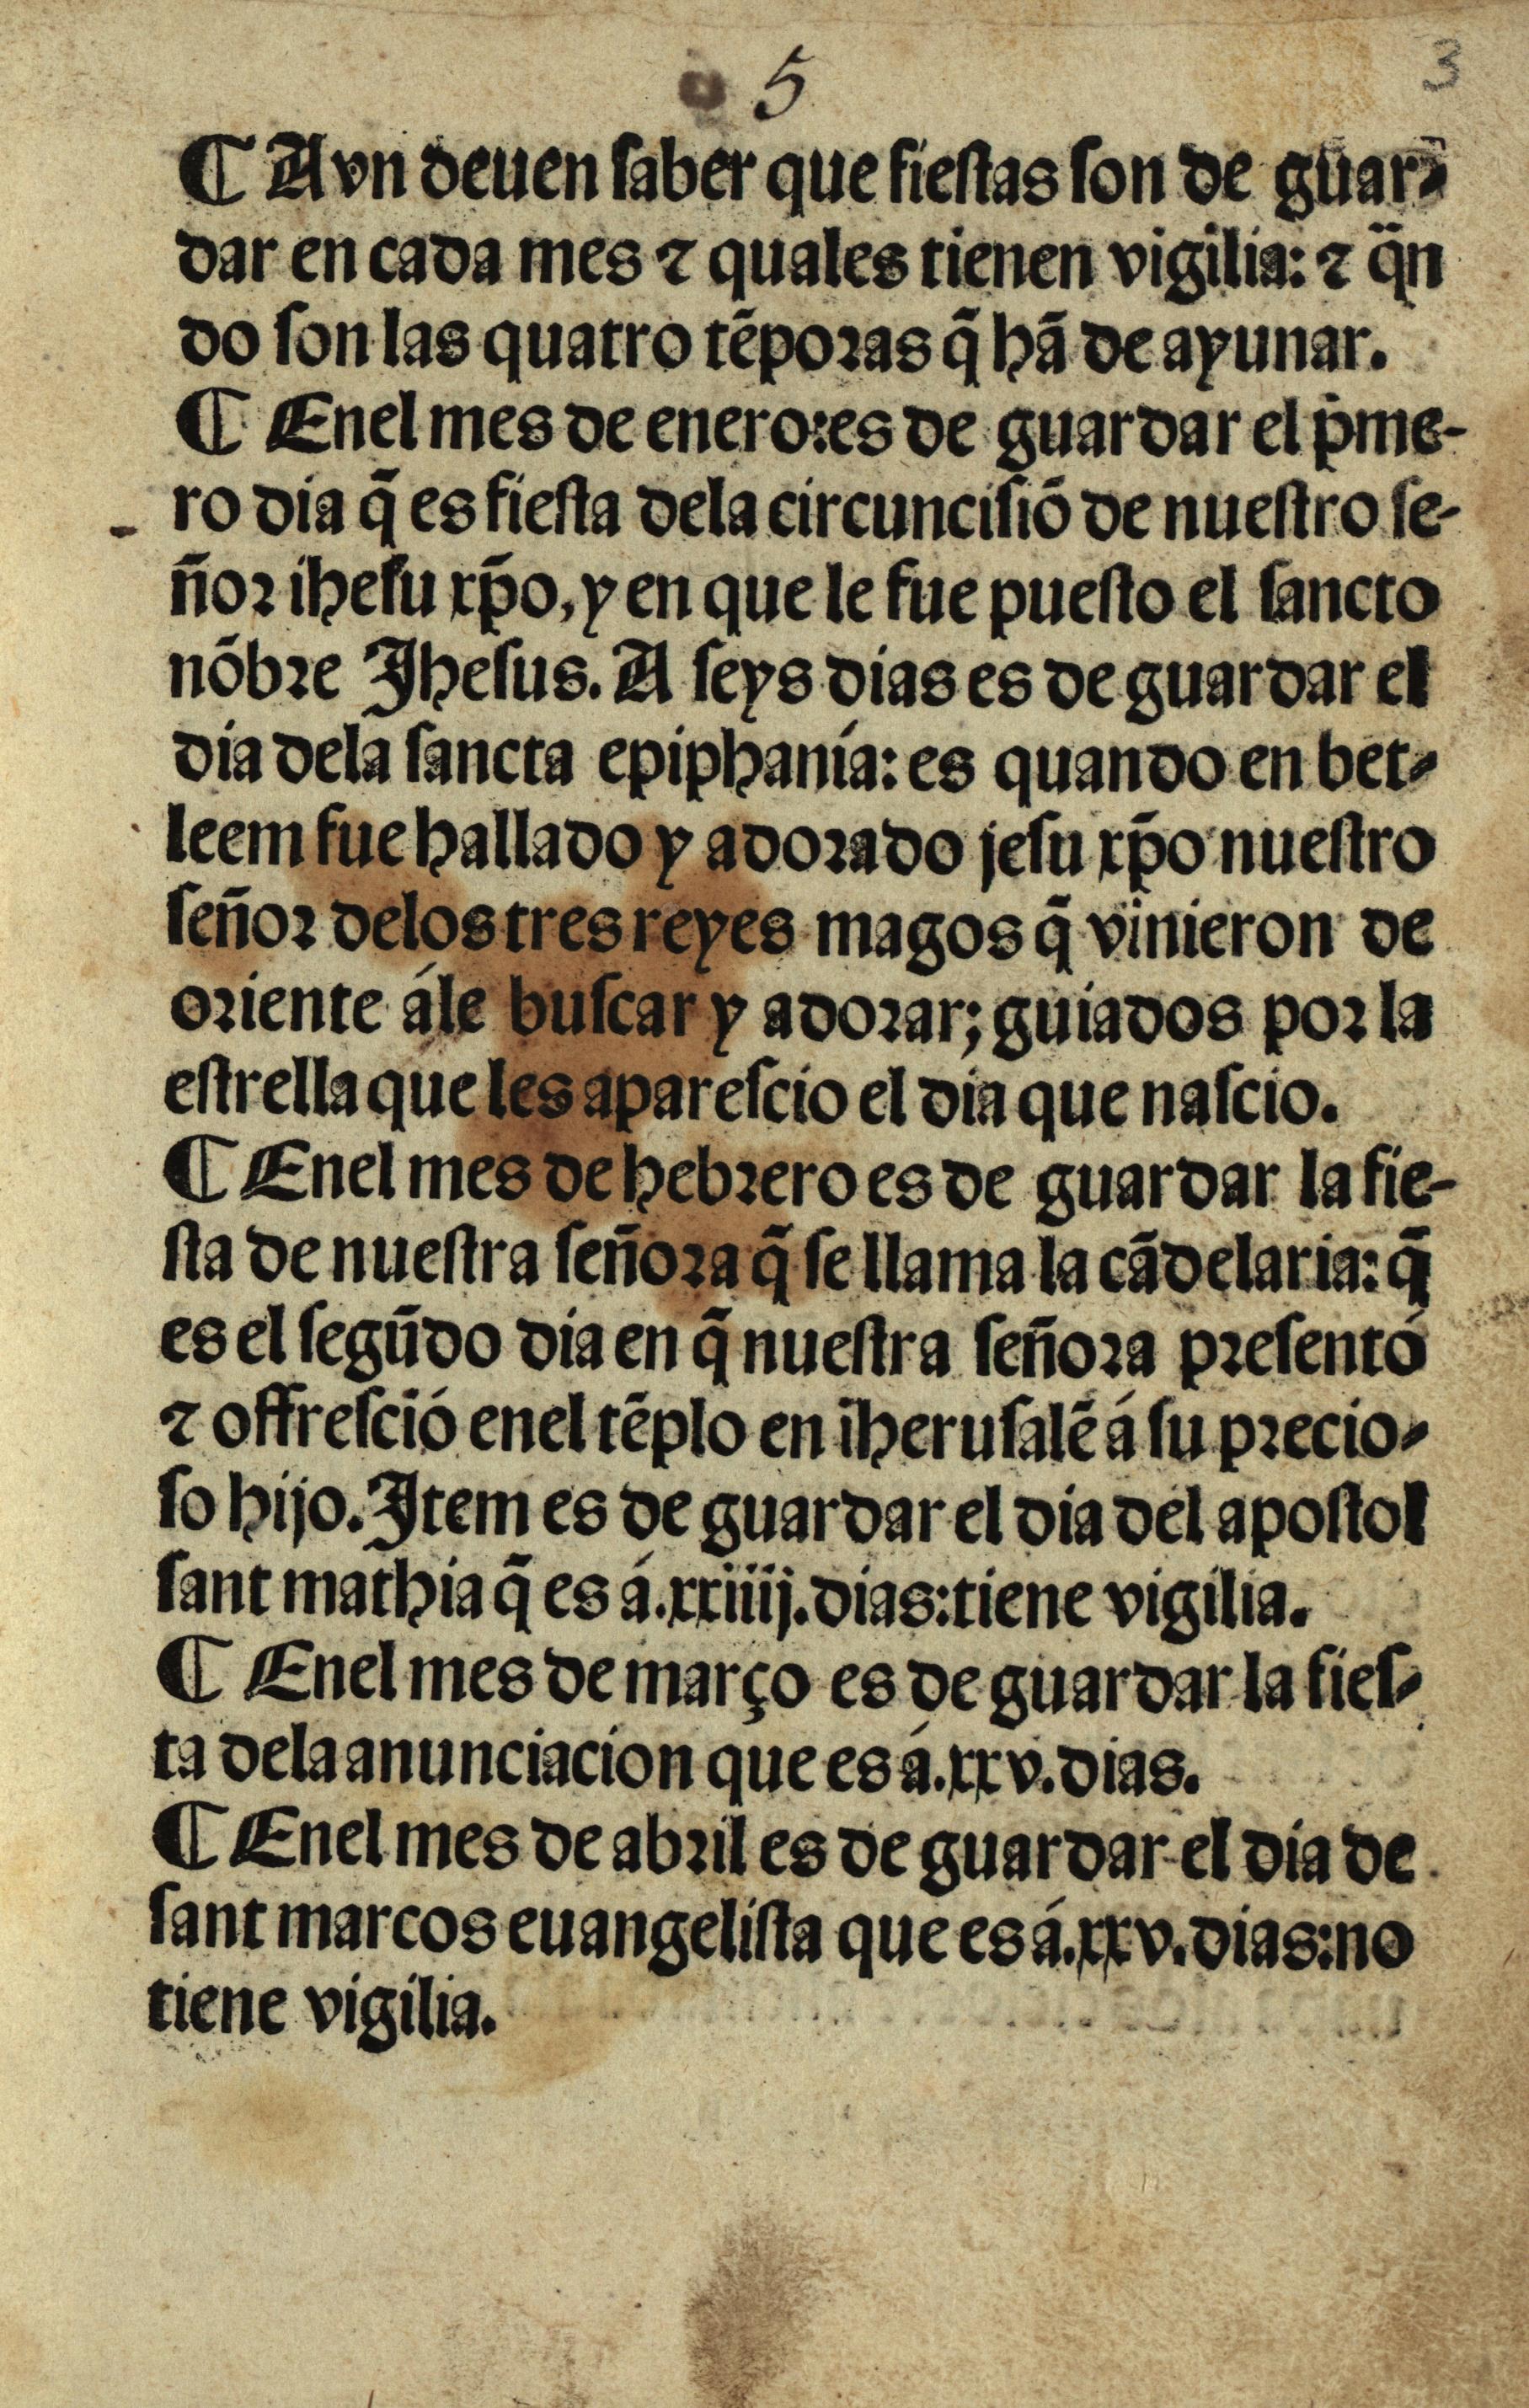 5
3
¶ Avn deuen saber que fiestas son de guar-
dar en cada mes ⁊ quales tienen vigilia: ⁊ q̈n
do son las quatro tẽporas q̃ hã de ayunar.
¶ Enel mes de enero:es de guardar el p̉me-
ro dia q̃ es fiesta dela circuncisiõ de nuestro se-
ñor ihesu xp̃o, y en que le fue puesto el sancto
nõbre Jhesus. A seys dias es de guardar el
dia dela sancta epiphanía: es quando en bet-
leem fue hallado y adorado jesu xp̃o nuestro
señor delos tres reyes magos q̃ vinieron de
oriente ále buscar y adorar; guiados por la
estrella que les aparescio el dia que nascio.
¶ Enel mes de hebrero es de guardar la fie-
sta de nuestra señora q̃ se llama la cãdelaria: q̃
es el segũdo dia en q̃ nuestra señora presentó
⁊ offresció enel tẽplo en iherusalẽ á su precio-
so hijo. Jtem es de guardar el dia del apostol
sant mathia q̃ es á.xxiiij.dias:tiene vigilia.
¶ Enel mes de março es de guardar la fies-
ta dela anunciacion que es á.xxv.dias.
¶ Enel mes de abril es de guardar el dia de
sant marcos euangelista que es á.xxv.dias:no
tiene vigilia.